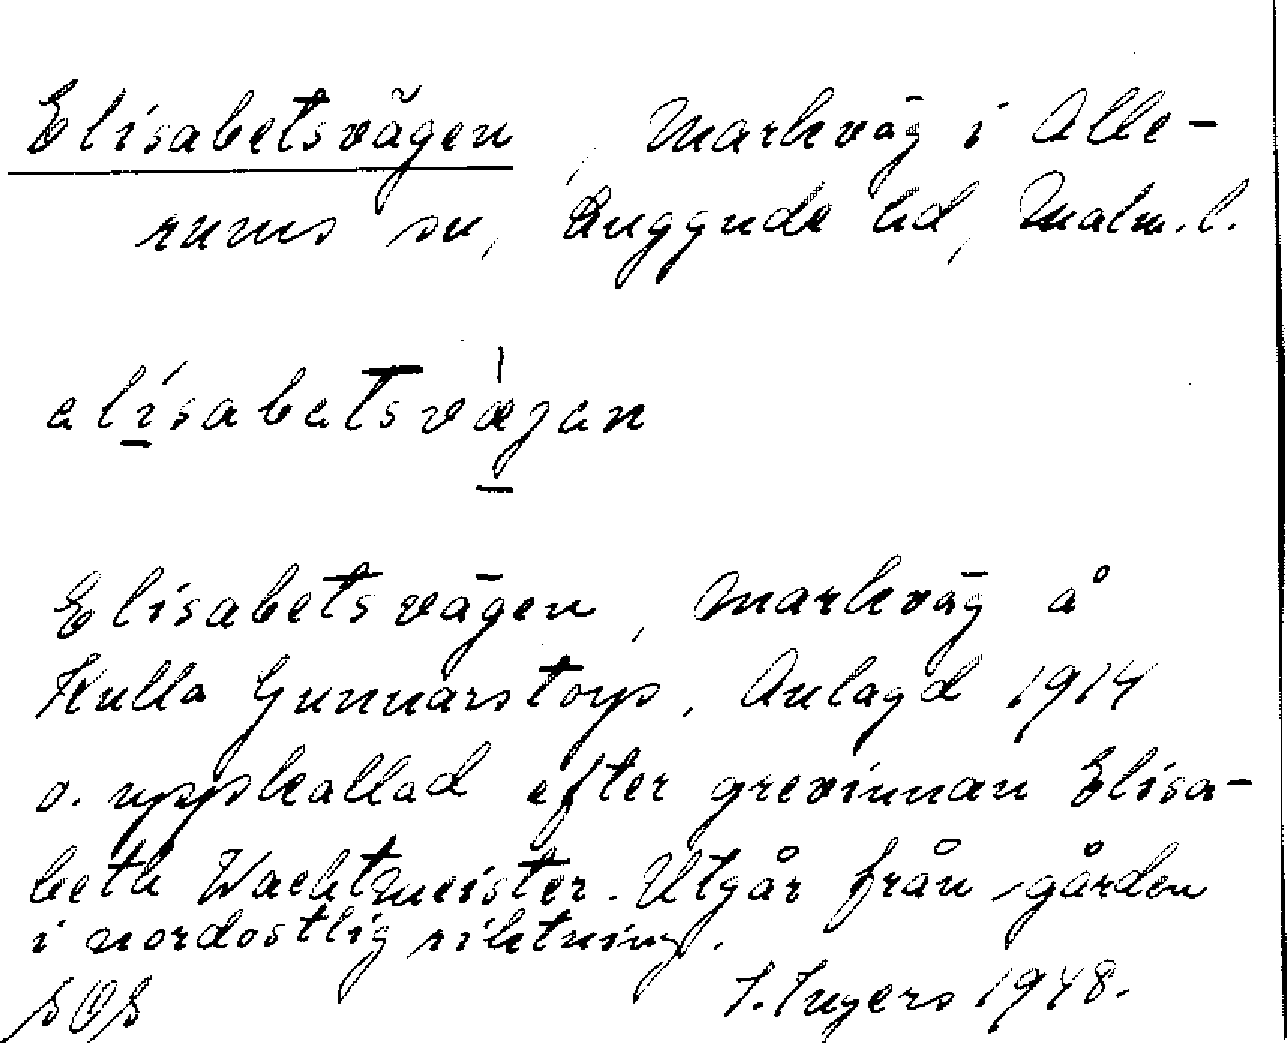 Elisabetsvägen, Markväg i Alle-
rums sn, Luggude hd, Malm.l.
elisabetsvægen
Elisabetsvägen, Markväg å
Kulla Gunnarstorp. Anlagd 1914
o. uppkallad efter grevinnan Elisa-
beth Wachtmeister. Utgår från gården
i nordostlig riktning.
I. Ingers 1948.